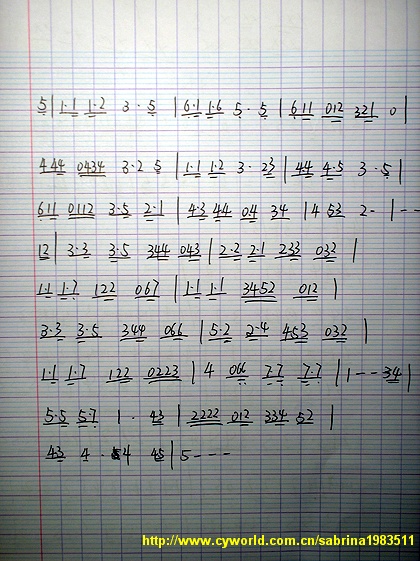 5 | 1·1 1·2 3·5 | 6·1 1·6 5·5 | 611 012 321 0
444 0434 3·2 5 | 1·1 1·2 3·23 | 4·4 4·5 3·5 |
611 0112 3·5 2·1 | 4·3 44 04 34 | 4 53 2- | --
12 | 3·3 3·5 344 043 | 2·2 2·1 233 032 |
1·1 1·7 122 067 | 1·1 1·1 3452 012 |
3·3 3·5 344 066 | 5·2 2·4 453 032 |
1·1 1·7 122 0223 | 4 066 77 7·7 | 1--34 |
5·5 5·7 1· 43 | 2222 012 334 52 |
43 4· 4 45 | 5---
http://www.cyworld.com.cn/sabrina1983511